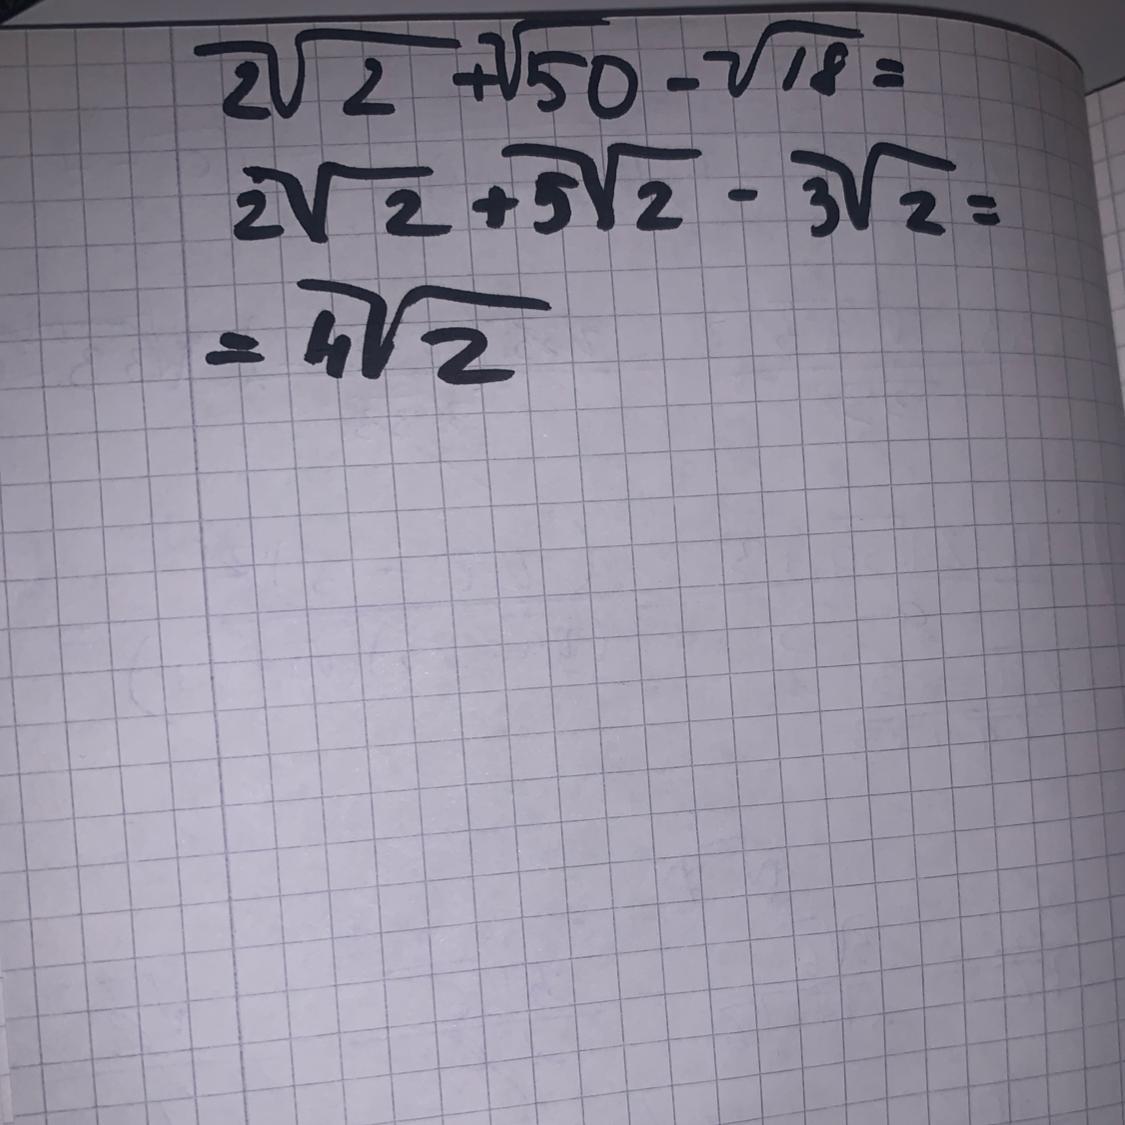 2√2 + √50 - √18 =
2√2 + 5√2 - 3√2 =
= 4√2